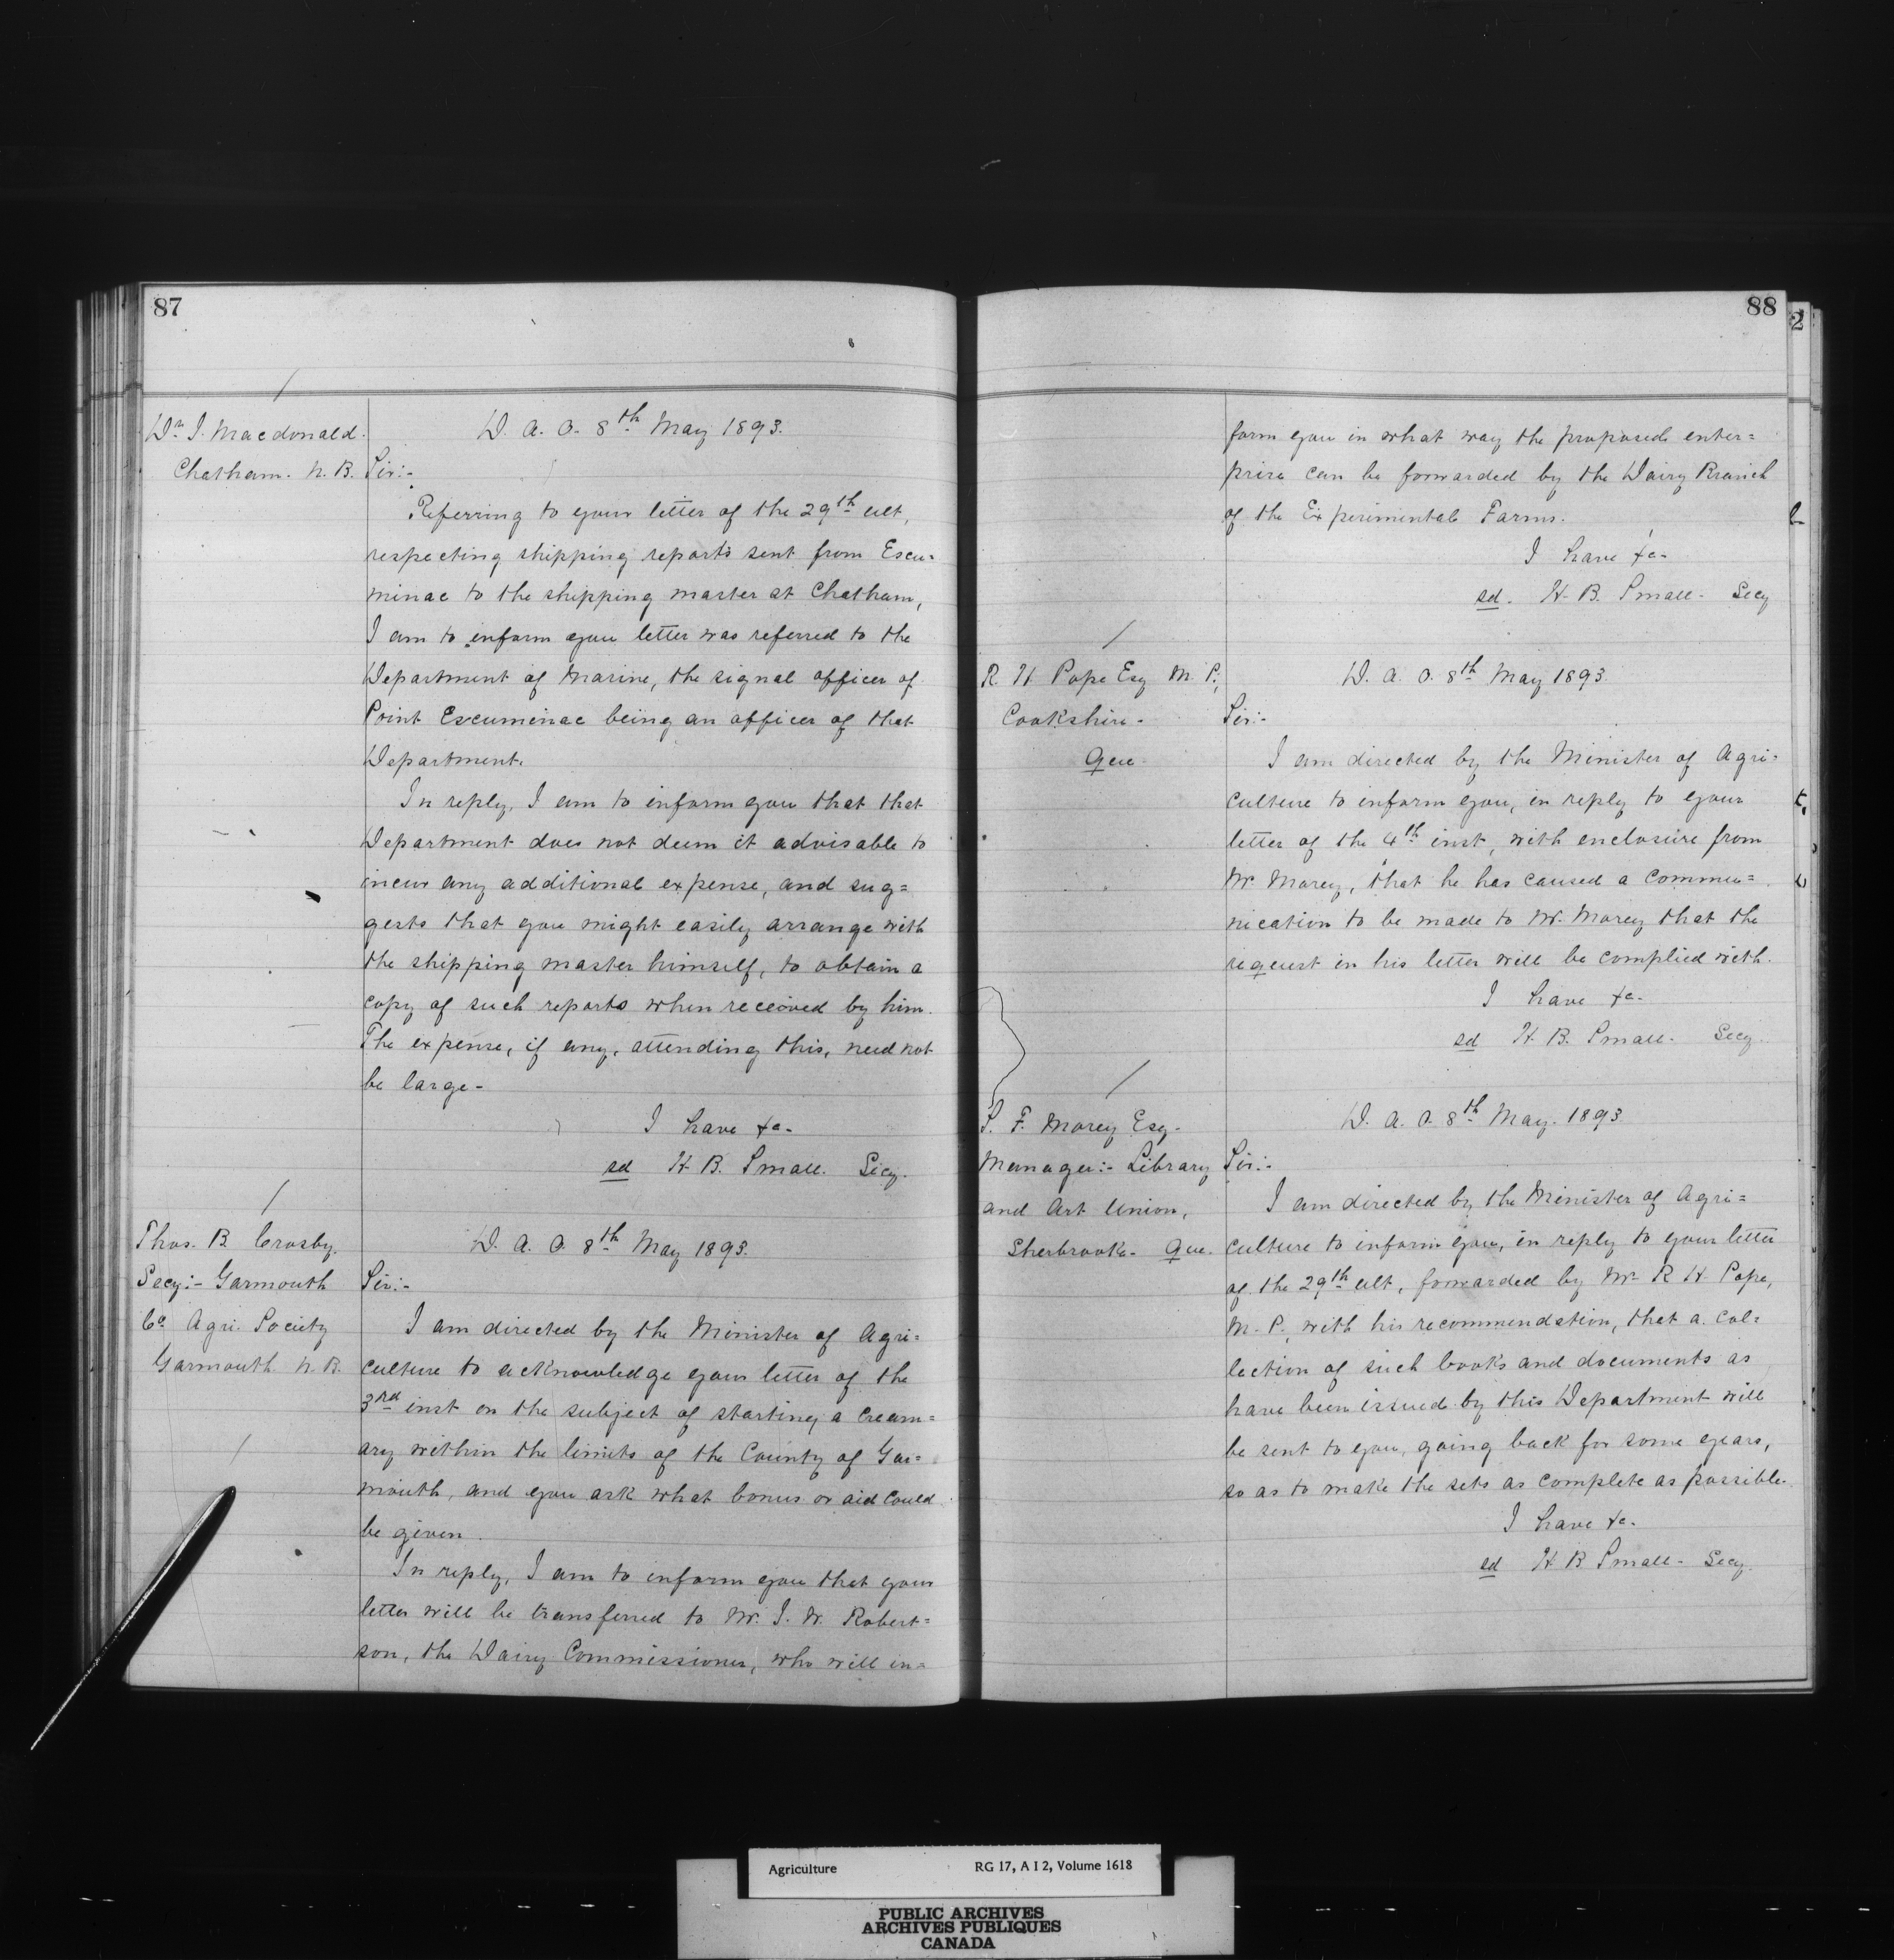 87
Dr J. Macdonald.
Chatham. N. B.
D. A. O. 8th May 1893.
Sir:-
Referring to your letter of the 29th ult,
respecting shipping reports sent from Escu=
minac to the shipping master at Chatham,
I am to inform you letter was referred to the
Department of Marine, the signal officer of
Point Escuminac being an officer of that
Department.
In reply, I am to inform you that that
Department does not deem it advisable to
incur any additional expense, and sug=
gests that you might easily arrange with
the shipping master himself, to obtain a
copy of such reports when received by him.
The expense, if any, attending this, need not
be large-
I have &c-
sd H B. Small. Secy.
Thos. B Crosby.
Secy:- Yarmouth
Co Agri. Society
Yarmouth N. B.
D. A. O. 8th May 1893.
Sir:-
I am directed by the Minister of Agri=
culture to acknowledge your letter of the
3rd inst on the subject of starting a cream=
ary within the limits of the County of Yar=
mouth, and you ask what bonus or aid could
be given.
In reply, I am to inform you that your
letter will be transferred to Mr. J. W. Robert=
son, the Dairy Commissioner, who will in=
88
2
form you in what way the proposed enter=
prise can be forwarded by the Dairy Branch
of the Experimental Farms.
I have &c-
sd. H. B. Small- Secy
R. H Pope Esq M. P.,
Cookshire-
Que
D. A. O. 8th May 1893
Sir:-
I am directed by the Minister of Agri=
culture to inform you, in reply to your
letter of the 4th inst, with enclosure from
Mr. Morey, that he has caused a commu=
nication to be made to Mr. Morey that the
request in his letter will be complied with.
I have &c-
sd H B. Small- Secy.
S. F. Morey Esq-
Manager:- Library
and Art Union,
Sherbrooke- Que.
D. A. O. 8th May. 1893
Sir:-
I am directed by the Minister of Agri=
culture to inform you, in reply to your letter
of the 29th ult, forwarded by Mr R H Pope,
M. P., with his recommendation, that a col=
lection of such books and documents as
have been issued by this Department will
be sent to you, going back for some years,
so as to make the sets as complete as possible-
I have &c-
sd H B Small- Secy
Agriculture RG 17, A I 2, Volume 1618
PUBLIC ARCHIVES
ARCHIVES PUBLIQUES
CANADA